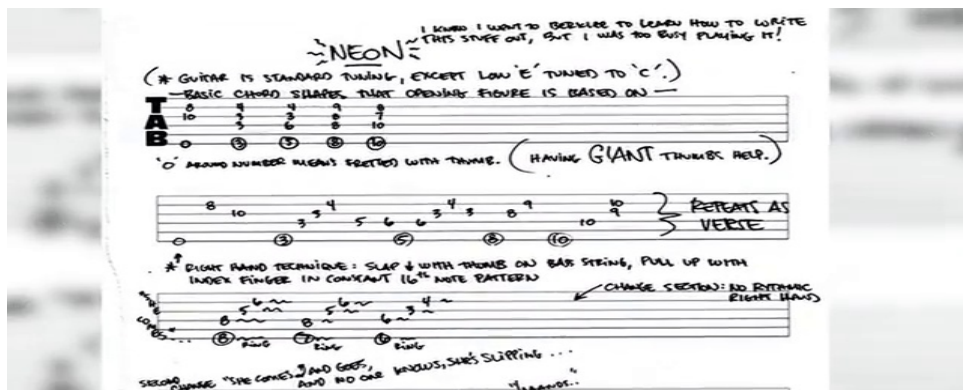 I KNOW I WENT TO BERKLEE TO LEARN HOW TO WRITE
THIS STUFF OUT, BUT I WAS TOO BUSY PLAYING IT!
NEON
(* GUITAR IS STANDARD TUNING, EXCEPT LOW 'E' TUNED TO 'C'.)
—BASIC CHORD SHAPES THAT OPENING FIGURE IS BASED ON—
TAB
8 4 4 9 8
10 3 3 8 7
3 6 8 10
0 3 5 8 10
'O' AROUND NUMBER MEANS FRETTED WITH THUMB. (HAVING GIANT THUMBS HELP.)
8 4 4 9 10
10 3 3 3 8 9
3 5 6 6 10
0 3 5 8 10
REPEATS AS
VERSE
* RIGHT HAND TECHNIQUE: SLAP ↓ WITH THUMB ON BASS STRING, PULL UP WITH
INDEX FINGER IN CONSTANT 16th NOTE PATTERN
CHANGE SECTION: NO RYTHMIC
RIGHT HAND
"SHE
COMES"...
6 6 4
5 5 3
8 8 6
8 7 6
RING RING RING
SECOND
CHANGE "SHE COMES AND GOES,
AND NO ONE KNOWS, SHE'S SLIPPING...